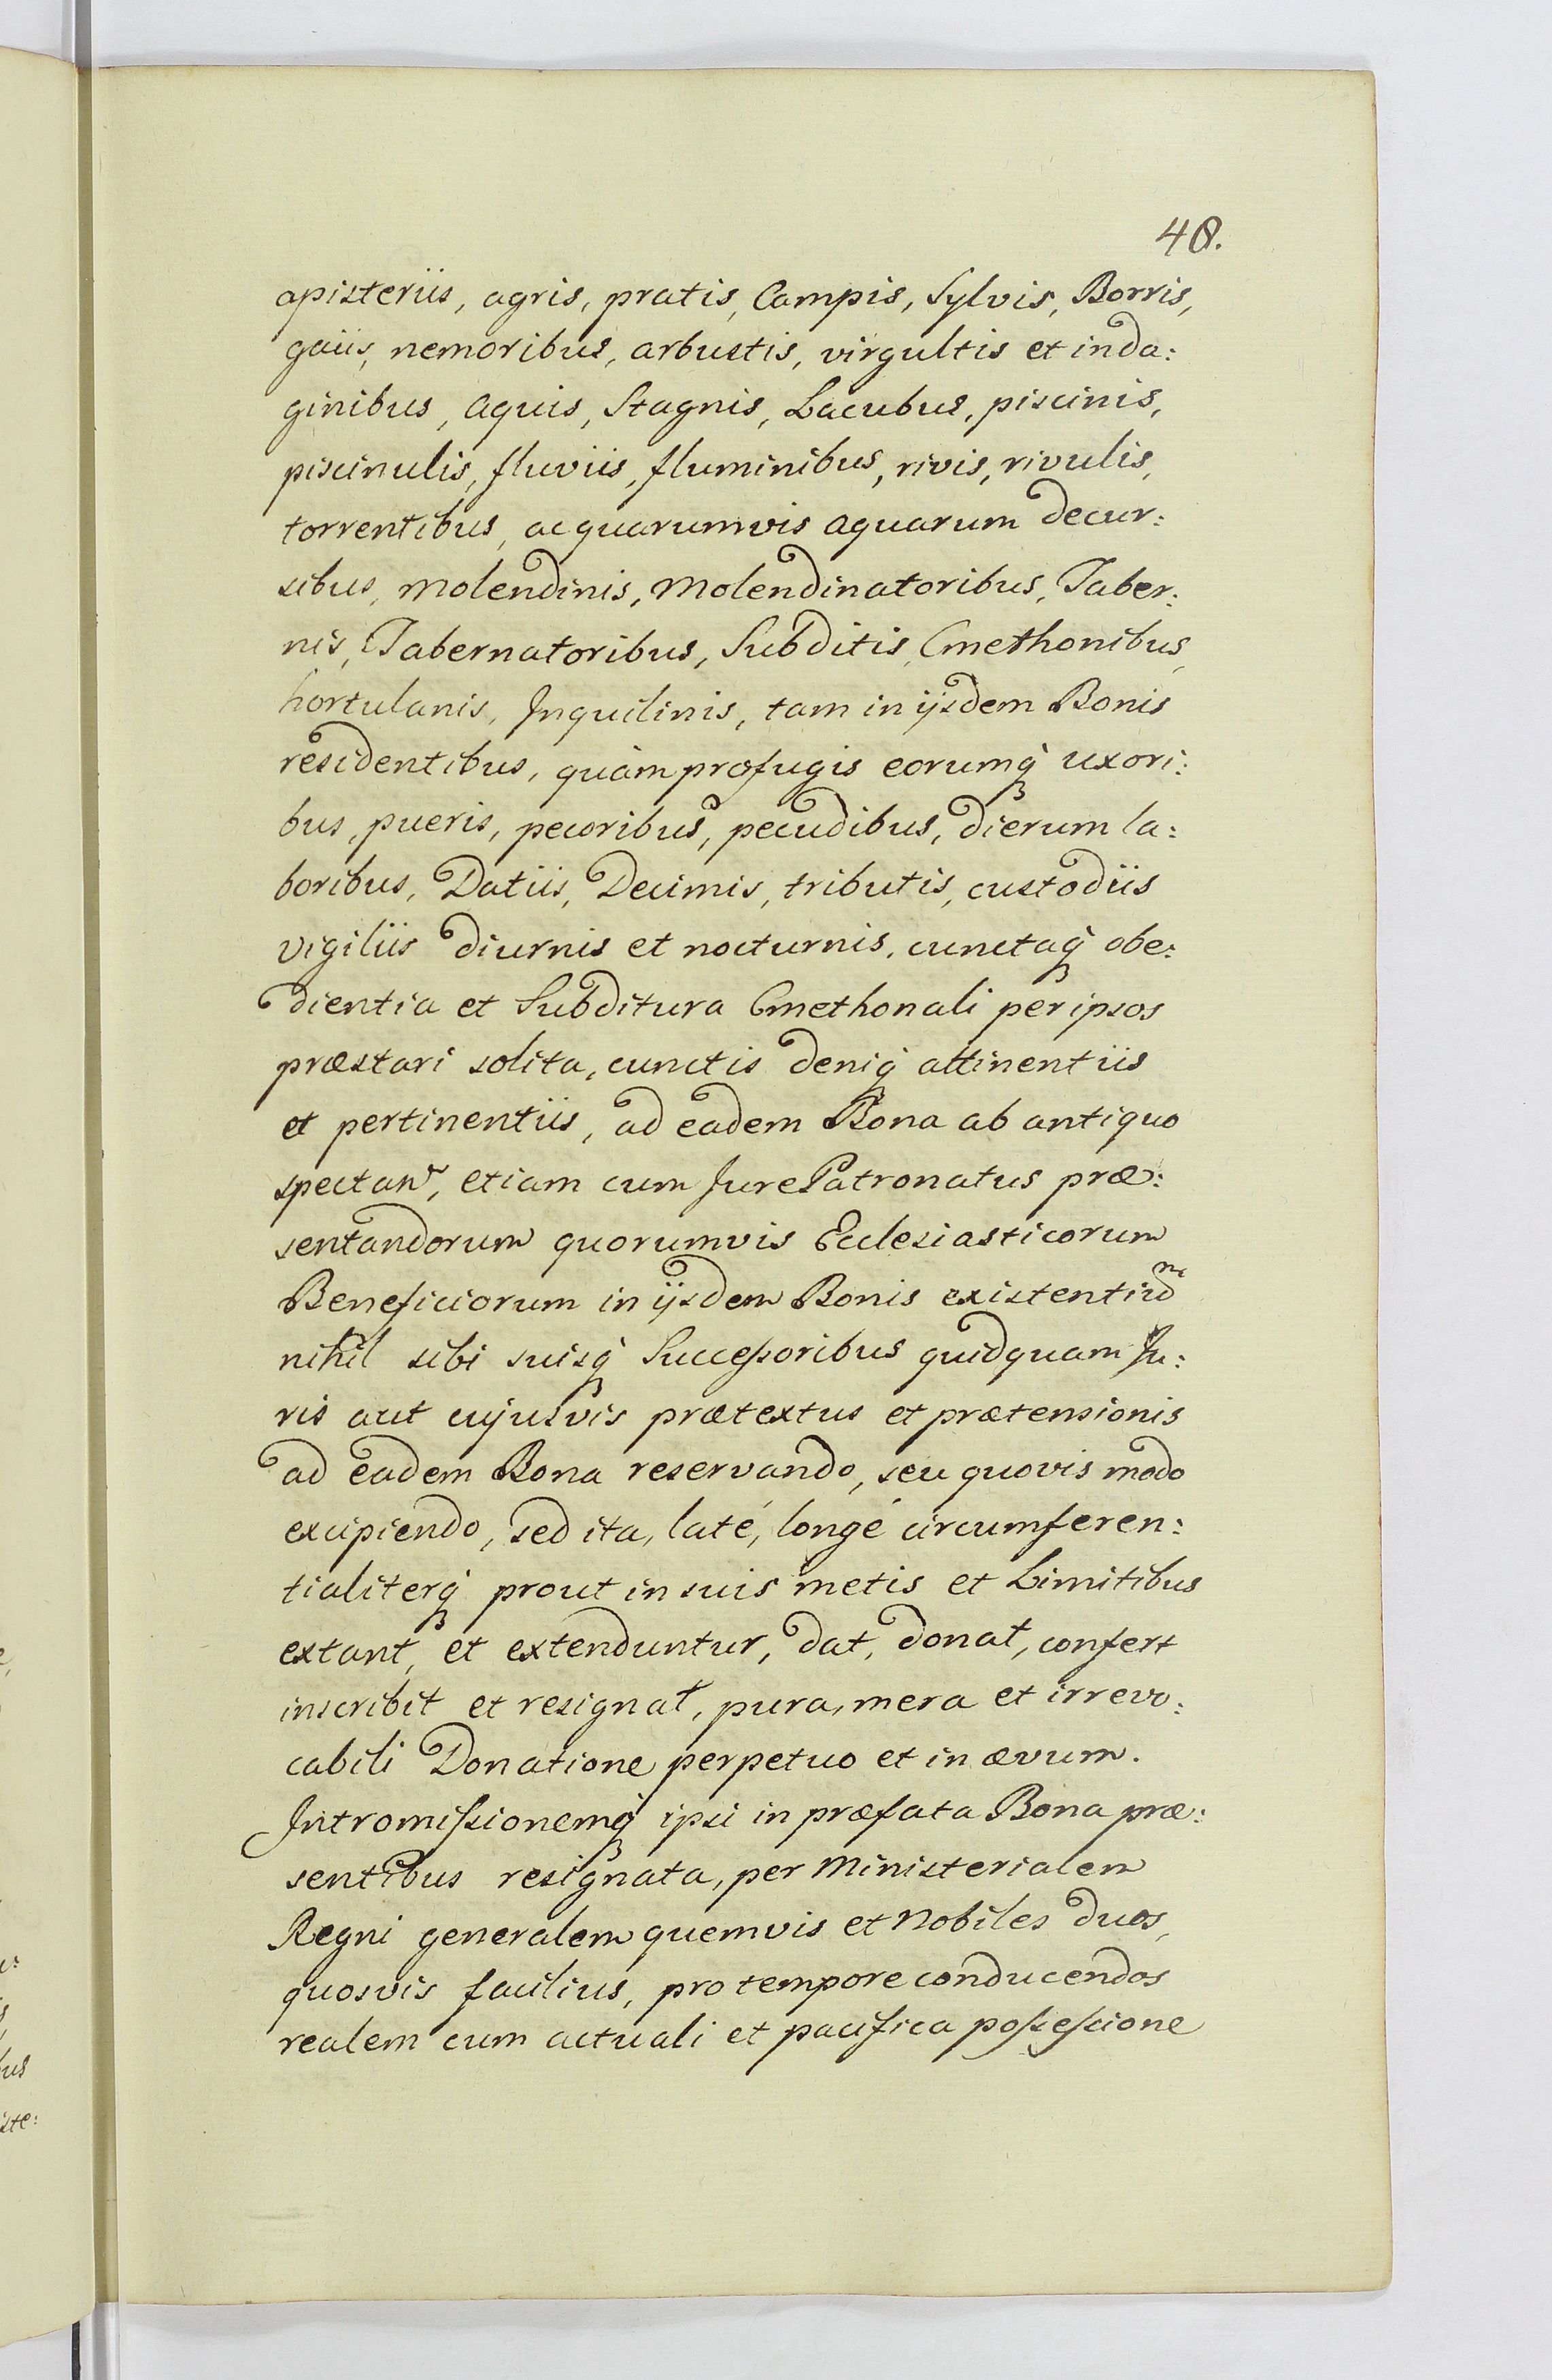 48.
apisteriis, agris, pratis, Campis, Sylvis, Borris,
gaiis, nemoribus, arbustis, virgultis et inda:
ginibus, aquis, Stagnis, Lacubus, piscinis,
piscinulis, fluviis, fluminibus, rivis, rivulis,
torrentibus, ac quarumvis aquarum decur:
sibus, molendinis, Molendinatoribus, Taber:
nis, Tabernatoribus, Subditis, Cmethonibus,
hortulanis, Inquilinis, tam in ijsdem Bonis
residentibus, quàm profugis eorumq̃ uxori:
bus, pueris, pecoribus, pecudibus, dierum la:
boribus, Datiis, Decimis, tributis, custodiis
vigiliis diurnis et nocturnis, cunctaq̃ obe:
dientia et Subditura Cmethonali per ipsos
præstari solita, cunctis deniq̃ attinentiis
et pertinentiis, ad eadem Bona ab antiquo
spectan̄, etiam cum Jure Patronatus præ:
sentandorum quorumvis Ecclesiasticorum
Beneficiorum in ijsdem Bonis existentiũ
nihil sibi suisq̃ Successoribus quidquam Ju:
ris aut cujusvis prætextus et prætensionis
ad eadem Bona reservando, seu quovis modo
excipiendo, sed ita, laté, longé circumferen:
tialiterq̃ prout in suis metis et Limitibus
extant, et extenduntur, dat, donat, confert
inscribit et resignat, pura, mera et irrevo:
cabili Donatione perpetuo et in ævum.
Intromissionemq̃ ipsi in præfata Bona præ:
sentibus resignata, per Ministerialem
Regni generalem quemvis et Nobiles duos,
quosvis facilius, pro tempore conducendos
realem cum actuali et pacifica possessione
us
ste: